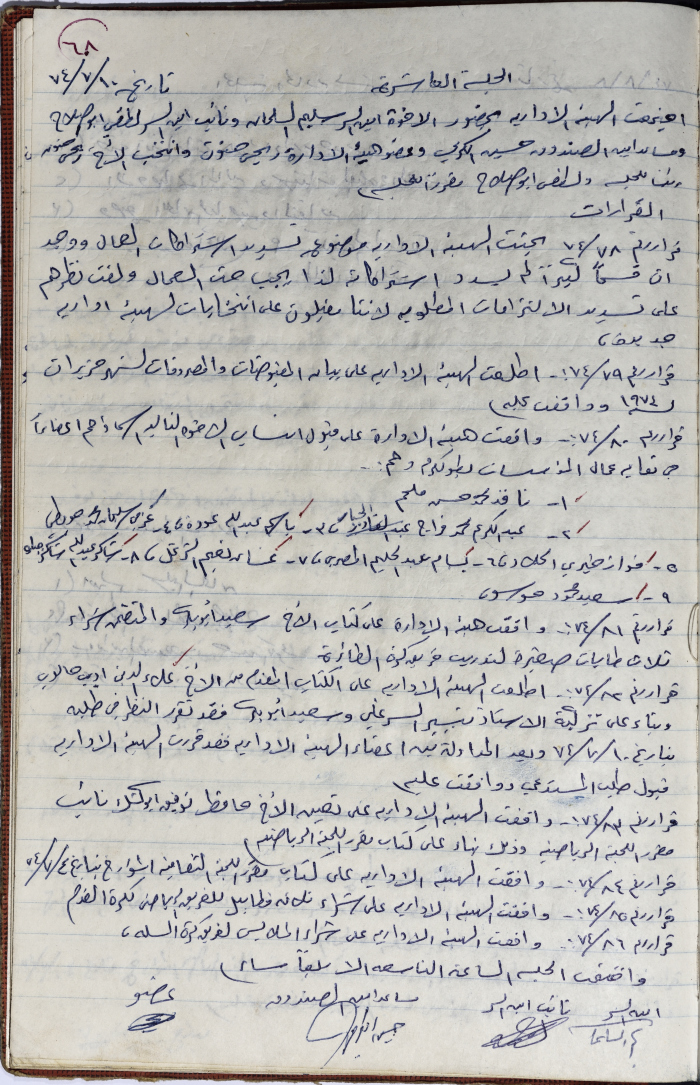 ٦٨
الجلسة العاشرة تاريخ ٧٤/٧/١٠
اجتمعت الهيئة الادارية بحضور الاخوة امين السر سليم السلمان ونائب امين السر لطفي ابو صلاح
ومساعد امين الصندوق حسين الكوني وعضو هيئة الادارة ربحي حنون وانتخب الأخ ربحي حنون
رئيساً للجلسة ولطفي ابو صلاح مقرراً للجلسة
القرارات
قرار رقم ٧٤/٧٨ بحثت الهيئة الادارية موضوع تسديد اشتراكات العمال ووجد
ان قسماً كبيراً لم يسدد اشتراكاته لذا يجب حث العمال ولفت نظرهم
على تسديد الالتزامات المطلوبة لاننا مقبلون على انتخابات لهيئة ادارية
جديدة
قرار رقم ٧٤/٧٩:- اطلعت الهيئة الادارية على بيان المقبوضات والمصروفات لشهر حزيران
لسنة ١٩٧٤ ووافقت عليه
قرار رقم ٧٤/٨٠:- وافقت هيئة الادارة على قبول انتساب الاخوة التالية اسماؤهم اعضاءاً
في نقابة عمال المؤسسات بطولكرم وهم:-
١- نافذ محمد حسن ملحم
٢- عبد الكريم محمد فراج عبد ٣- باسم عبد الله عودة ٤-
٥- فواز خيري الجلاد ٦- بسام عبد الحليم المصري ٧- غسان نعيم ٨- شاكر عبد الله
٩- سعيد محمود موسى
قرار رقم ٧٤/٨١:- وافقت هيئة الادارة على كتاب الأخ سعيد والمتضمن شراء
ثلاث طابات صغيرة لتدريب فريق كرة الطائرة
قرار رقم ٧٤/٨٢:- اطلعت الهيئة الادارية على الكتاب المقدم من الأخ علاء الدين اديب
وبناء على تزكية الاستاذ تيسير وسعيد فقد تقرر النظر في طلبه
بتاريخ ٧٤/٧/١٠ وبعد المداولة بين اعضاء الهيئة الادارية فقد قررت الهيئة الادارية
قبول طلب المستدعي ووافقت عليه
قرار رقم ٧٤/٨٣:- وافقت الهيئة الادارية على تعيين الأخ حافظ توفيق نائب
مقرر اللجنة الرياضية وذلك بناء على كتاب مقرر اللجنة الرياضية
قرار رقم ٧٤/٨٤:- وافقت الهيئة الادارية على كتاب مقرر اللجنة الثقافية المؤرخ بتاريخ ٧٤/٧/٤
قرار رقم ٧٤/٨٥:- وافقت الهيئة الادارية على شراء ثلاثة للفريق الرياضي لكرة القدم
قرار رقم ٧٤/٨٦:- وافقت الهيئة الادارية على شراء الملابس لفريق كرة السلة
واختتمت الجلسة الساعة التاسعة الا ربعاً مساء
امين السر نائب امين السر مساعد امين الصندوق عضو